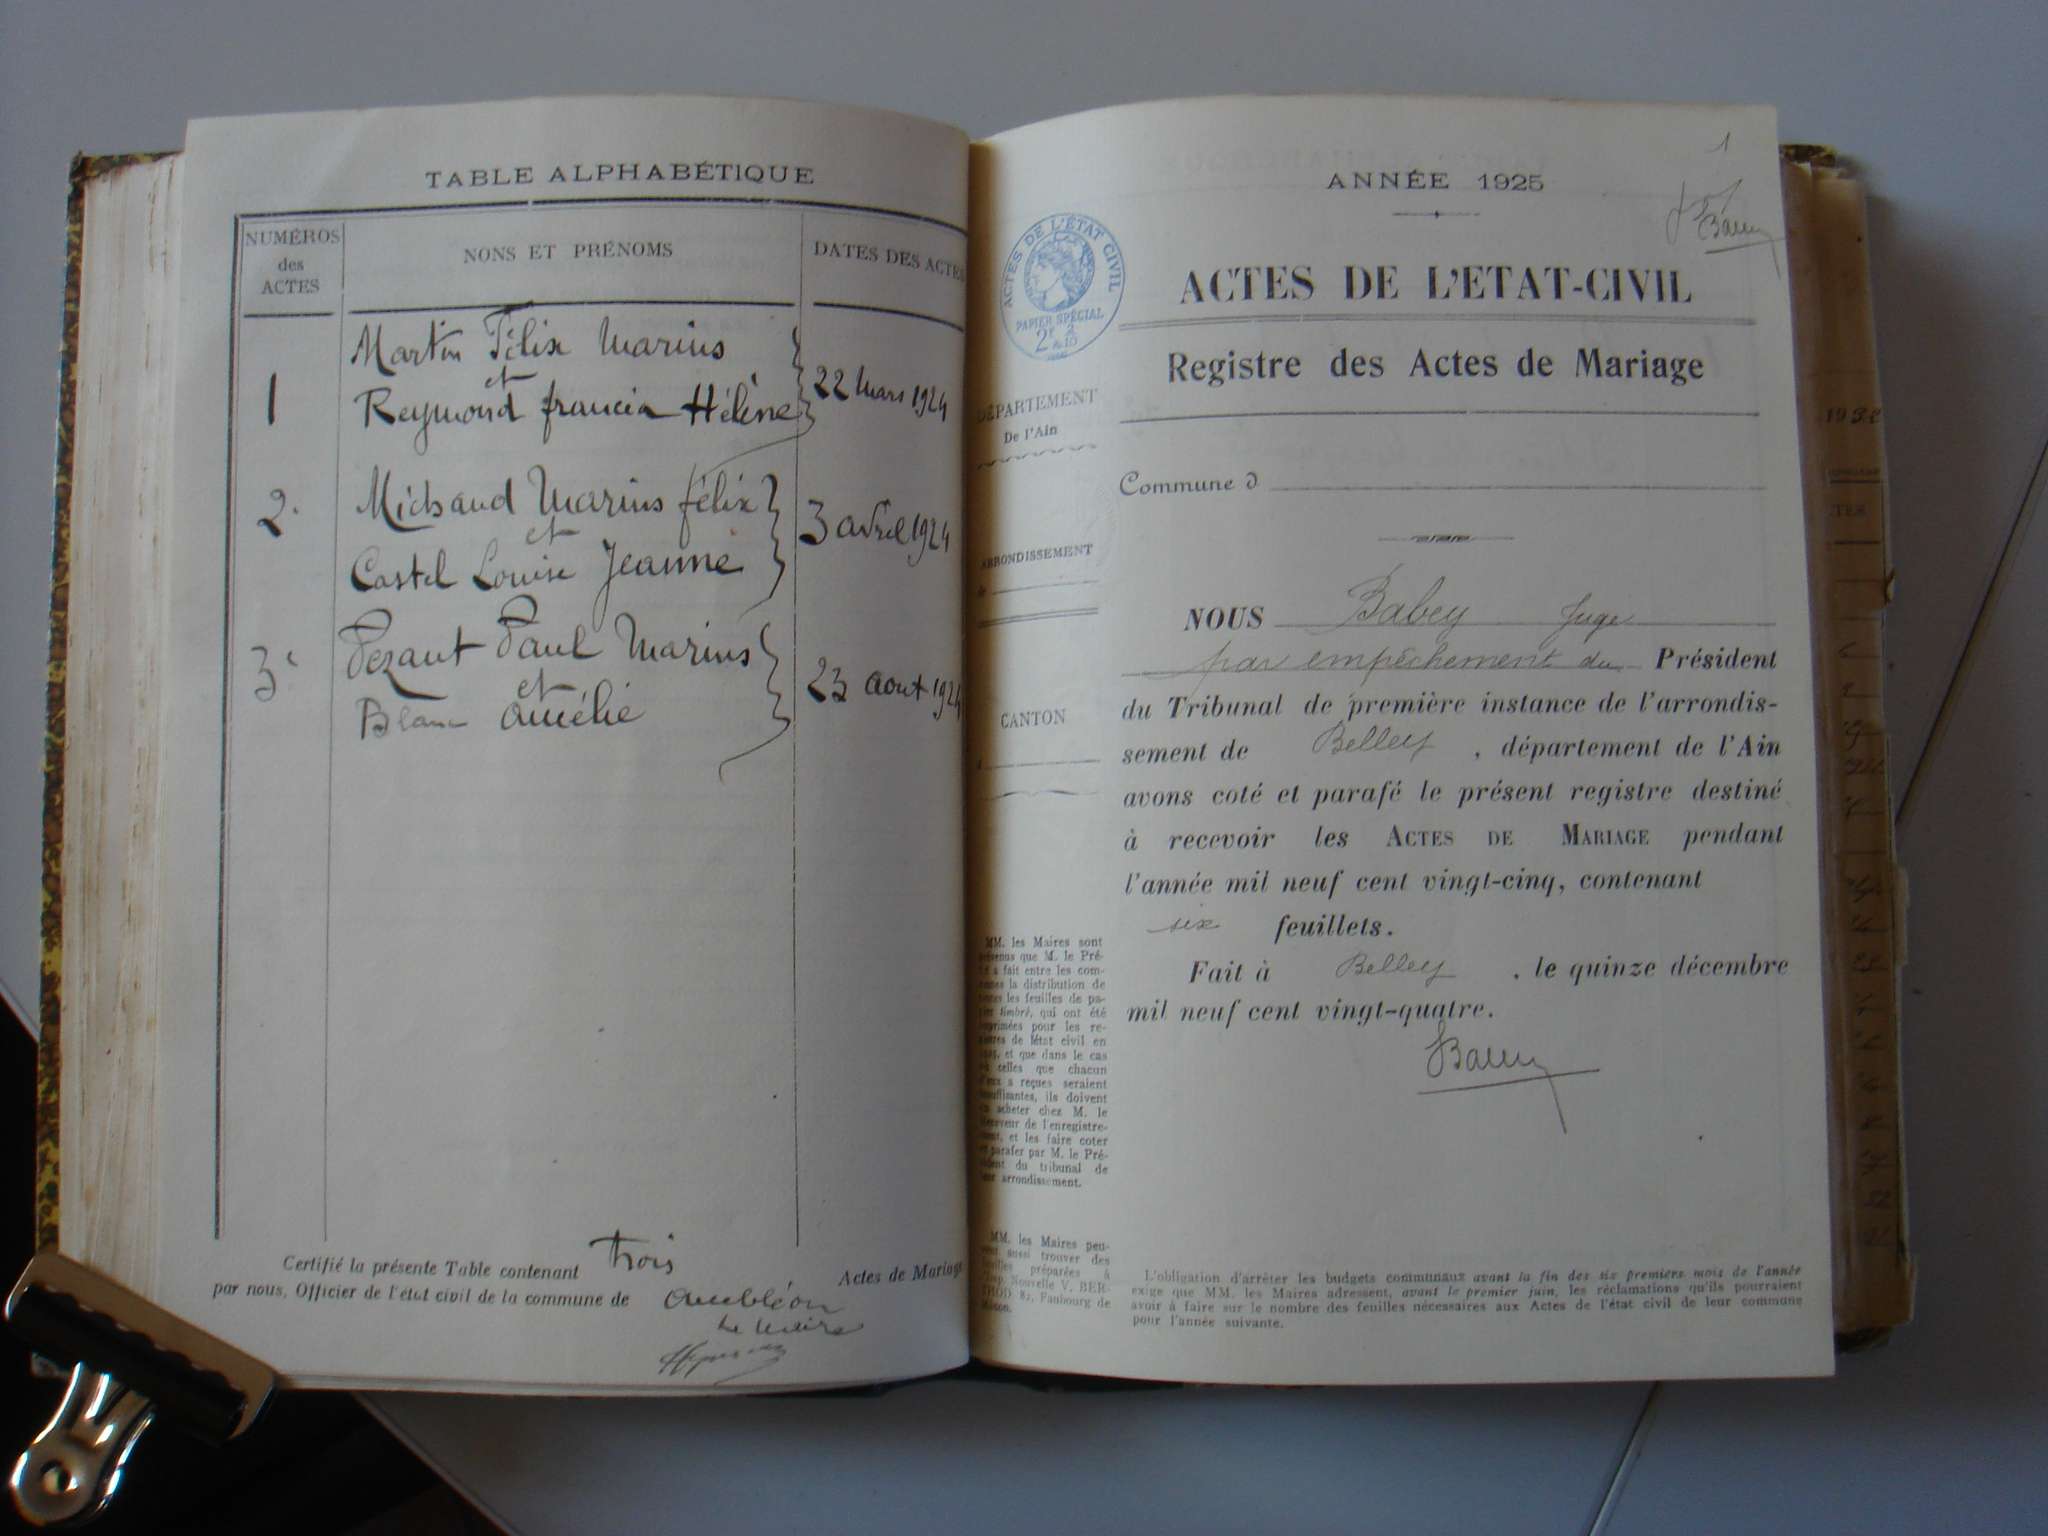 TABLE ALPHABÉTIQUE
NUMÉROS
des
ACTES
NONS ET PRÉNOMS
DATES DES ACTES
Martin Félix Marius
et
1
22 Mars 1924
Reymond francia Hélène
Michaud Marius félix
2.
et
3 avril 1924
Castel Louise Jeanne
Pezant Paul Marius
3
et
23 aout 1924
Blanc Amélie
Certifié la présente Table contenant Trois Actes de Mariage
par nous, Officier de l'état civil de la commune de Ambléon
Le Maire
1
ANNÉE 1925
ACTES DE L'ÉTAT CIVIL
PAPIER SPÉCIAL
ACTES DE L'ETAT-CIVIL
Registre des Actes de Mariage
DÉPARTEMENT
De l'Ain
ARRONDISSEMENT
CANTON
Commune d
NOUS Babey Juge
par empêchement du Président
du Tribunal de première instance de l'arrondis-
sement de Belley, département de l'Ain
avons coté et parafé le présent registre destiné
à recevoir les ACTES DE MARIAGE pendant
l'année mil neuf cent vingt-cinq, contenant
six feuillets.
Fait à Belley, le quinze décembre
mil neuf cent vingt-quatre.
MM. les Maires sont
que M. le Pré-
a fait entre les com-
la distribution de
les feuilles de pa-
timbré, qui ont été
pour les re-
de létat civil en
et que dans le cas
celles que chacun
a reçues seraient
ils doivent
acheter chez M. le
de l'enregistre-
et les faire coter
parafer par M. le Pré-
du tribunal de
arrondissement.
MM. les Maires peu-
aussi trouver des
préparées à
Nouvelle V. BER-
Faubourg de
L'obligation d'arrêter les budgets communaux avant la fin des six premiers mois de l'année
exige que MM. les Maires adressent, avant le premier juin, les réclamations qu'ils pourraient
avoir à faire sur le nombre des feuilles nécessaires aux Actes de l'état civil de leur commune
pour l'année suivante.